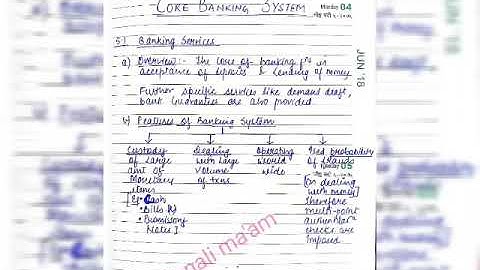 CORE BANKING SYSTEM
Monday 04
JUN '18
Banking Services
a) Overview :- The core of banking fns is
acceptance of deposits & lending of money
Further specific services like demand draft,
bank Guarantees are also provided.
b) Features of Banking System
Custody of Large amt of Monetary items
[Eg • Cash
• Bills R/
• Promissory Notes]
Dealing with large volume of txns
Operating world wide
probability of frauds
Tuesday 05
[On dealing with money]
Therefore multi-point
checks are imposed
nali ma'am